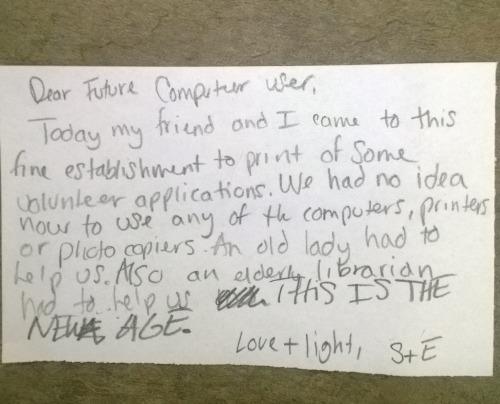 Dear Future Computer user,
Today my friend and I came to this
fine establishment to print of some
volunteer applications. We had no idea
how to use any of the computers, printers
or photo copiers. An old lady had to
help us. Also an elderly librarian
had to help us THIS IS THE
NEW AGE.
Love + light, S+E